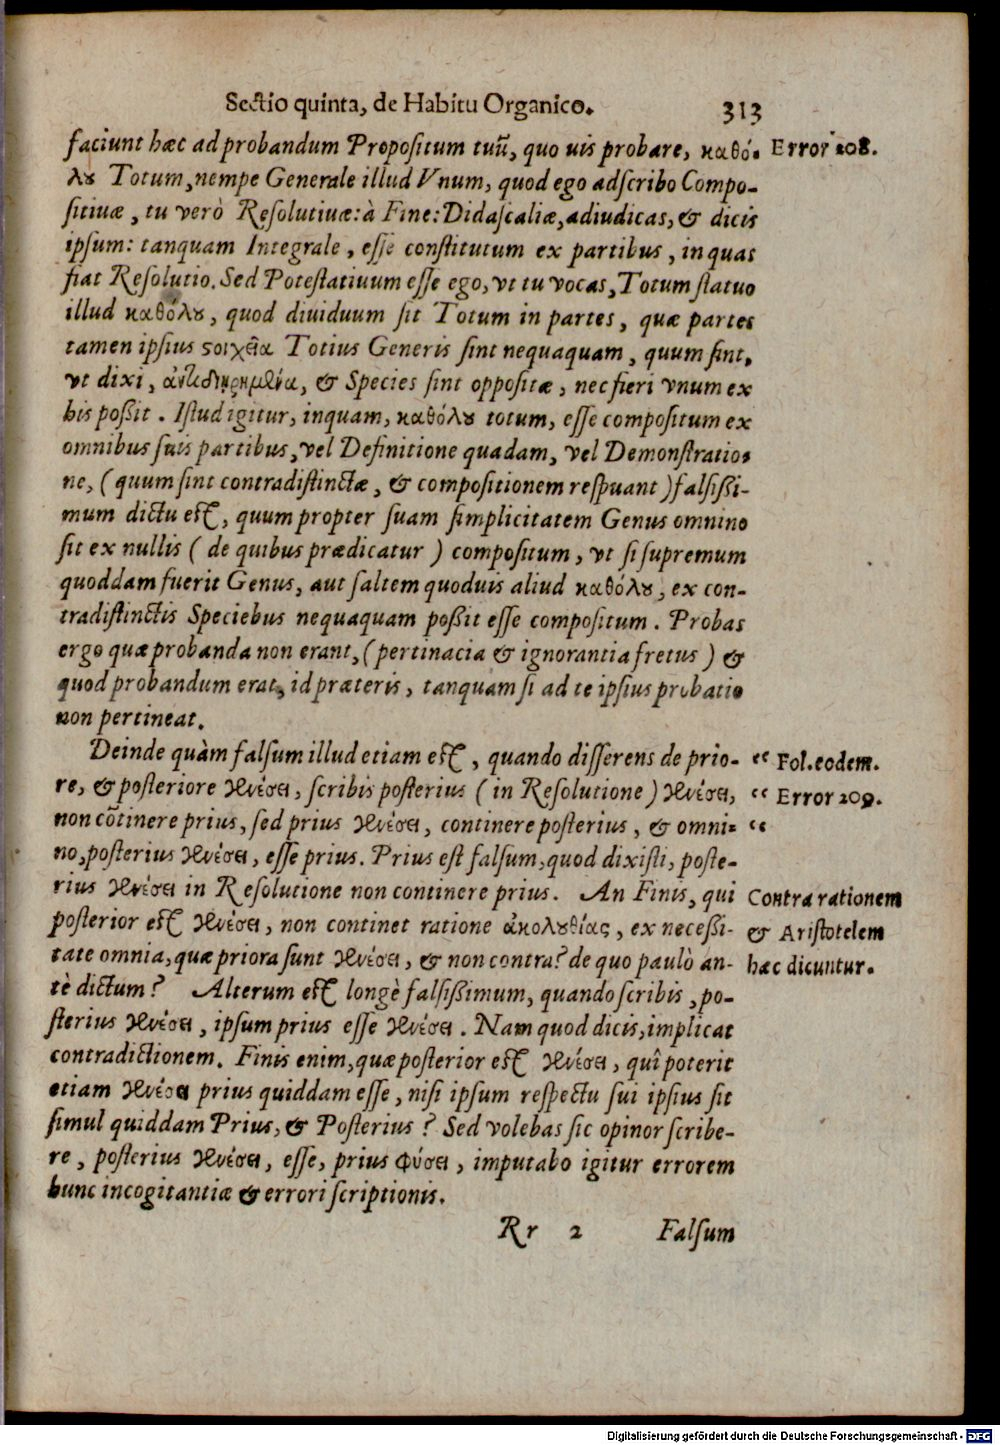 Sectio quinta, de Habitu Organico. 313
faciunt hæc ad probandum Propositum tuũ, quo uis probare, καθό- Error 108.
λȣ Totum, nempe Generale illud Vnum, quod ego adscribo Compo-
sitiuæ, tu verò Resolutiuæ: à Fine: Didascaliæ, adiudicas, & dicis
ipsum: tanquam Integrale, esse constitutum ex partibus, in quas
fiat Resolutio. Sed Potestatiuum esse ego, vt tu vocas, Totum statuo
illud καθόλȣ, quod diuiduum sit Totum in partes, quæ partes
tamen ipsius ϛοιχεῖα Totius Generis sint nequaquam, quum sint,
vt dixi, ἀντιδιῃρημένα, & Species sint oppositæ, nec fieri vnum ex
his poßit. Istud igitur, inquam, καθόλȣ totum, esse compositum ex
omnibus suis partibus, vel Definitione quadam, vel Demonstratio-
ne, (quum sint contradistinctæ, & compositionem respuant) falsißi-
mum dictu est, quum propter suam simplicitatem Genus omnino
sit ex nullis (de quibus prædicatur) compositum, vt si supremum
quoddam fuerit Genus, aut saltem quoduis aliud καθόλȣ, ex con-
tradistinctis Speciebus nequaquam poßit esse compositum. Probas
ergo quæ probanda non erant, (pertinacia & ignorantia fretus) &
quod probandum erat, id præteris, tanquam si ad te ipsius probatio
non pertineat.
Deinde quàm falsum illud etiam est, quando disserens de prio- “ Fol. eodem.
re, & posteriore γενέσει, scribis posterius (in Resolutione) γενέσει, “ Error 109.
non cõtinere prius, sed prius γενέσει, continere posterius, & omni- “
no, posterius γενέσει, esse prius. Prius est falsum, quod dixisti, poste-
rius γενέσει in Resolutione non continere prius. An Finis, qui Contra rationem
posterior est γενέσει, non continet ratione ἀκολȣθίας, ex neceßi- & Aristotelem
tate omnia, quæ priora sunt γενέσει, & non contra? de quo paulò an- hæc dicuntur.
tè dictum? Alterum est longè falsißimum, quando scribis, po-
sterius γενέσει, ipsum prius esse γενέσει. Nam quod dicis, implicat
contradictionem. Finis enim, quæ posterior est γενέσει, quî poterit
etiam γενέσει prius quiddam esse, nisi ipsum respectu sui ipsius sit
simul quiddam Prius, & Posterius? Sed volebas sic opinor scribe-
re, posterius γενέσει, esse, prius φύσει, imputabo igitur errorem
hunc incogitantiæ & errori scriptionis.
Rr 2 Falsum
Digitalisierung gefördert durch die Deutsche Forschungsgemeinschaft - DFG